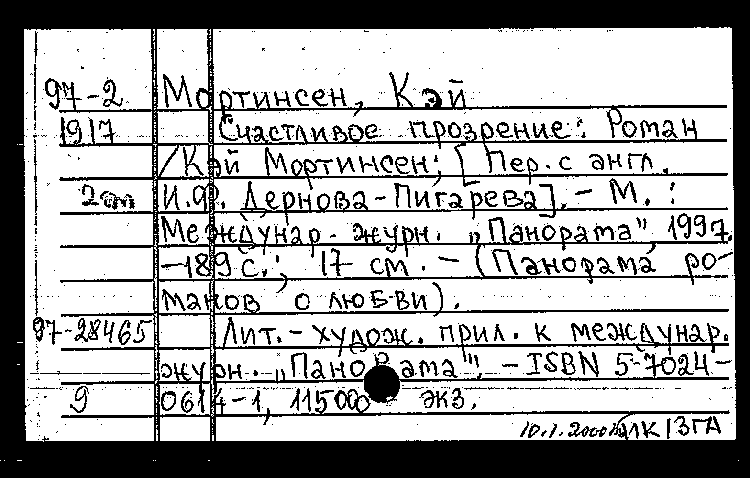 97-2 Мортинсен, Кэй
1917 Счастливое прозрение: Роман
/Кэй Мортинсен; [Пер. с англ.
И.Ф. Дернова-Пигарева]. - М.:
Междунар. журн. „Панорама", 1997.
-189 с.; 17 см. - (Панорама ро-
манов о любви).
97-28465 Лит.-худож. прил. к междунар.
журн. „Панорама". - ISBN 5-7024-
9 0614-1, 115000 экз.